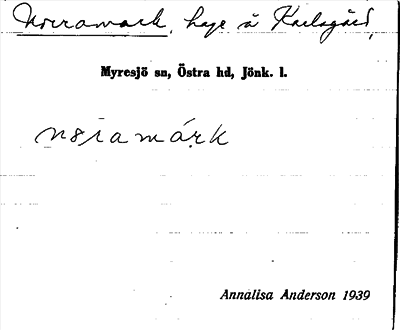 Norramark, hage å Karlsgård,
Myresjö sn, Östra hd, Jönk. l.
nɷ̀ramárk
Annalisa Anderson 1939